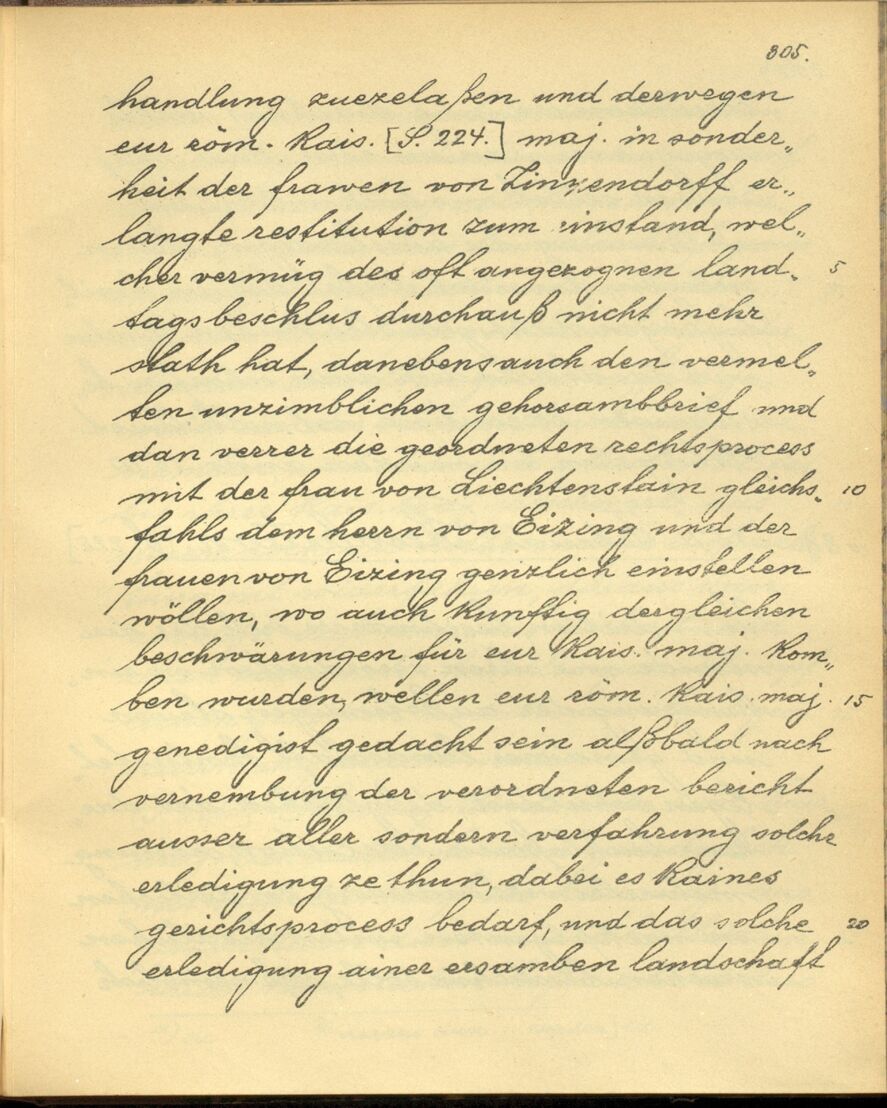 305.
handlung zuezelaßen und derwegen
eur röm. kais. [S. 224.] maj. in sonder„
heit der frawen von Zinzendorff er„
langte restitution zum einstand, wel„
cher vermüg des oft angezognen land„ 5
tagsbeschlus durchauß nicht mehr
stath hat, danebens auch den vermel„
ten unzimblichen gehorsambbrief und
dan verrer die geordneten rechtsprocess
mit der frau von Liechtenstain gleichs„ 10
fahls dem herrn von Eizing und der
frauen von Eizing genzlich einstellen
wöllen, wo auch kunftig dergleichen
beschwärungen für eur kais. maj. kom„
ben wurden, wellen eur röm. kais. maj. 15
genedigist gedacht sein alßbald nach
vernembung der verordneten bericht
ausser aller sondern verfahrung solche
erledigung ze thun, dabei es kaines
gerichtsprocess bedarf, und das solche 20
erledigung ainer ersamben landschaft